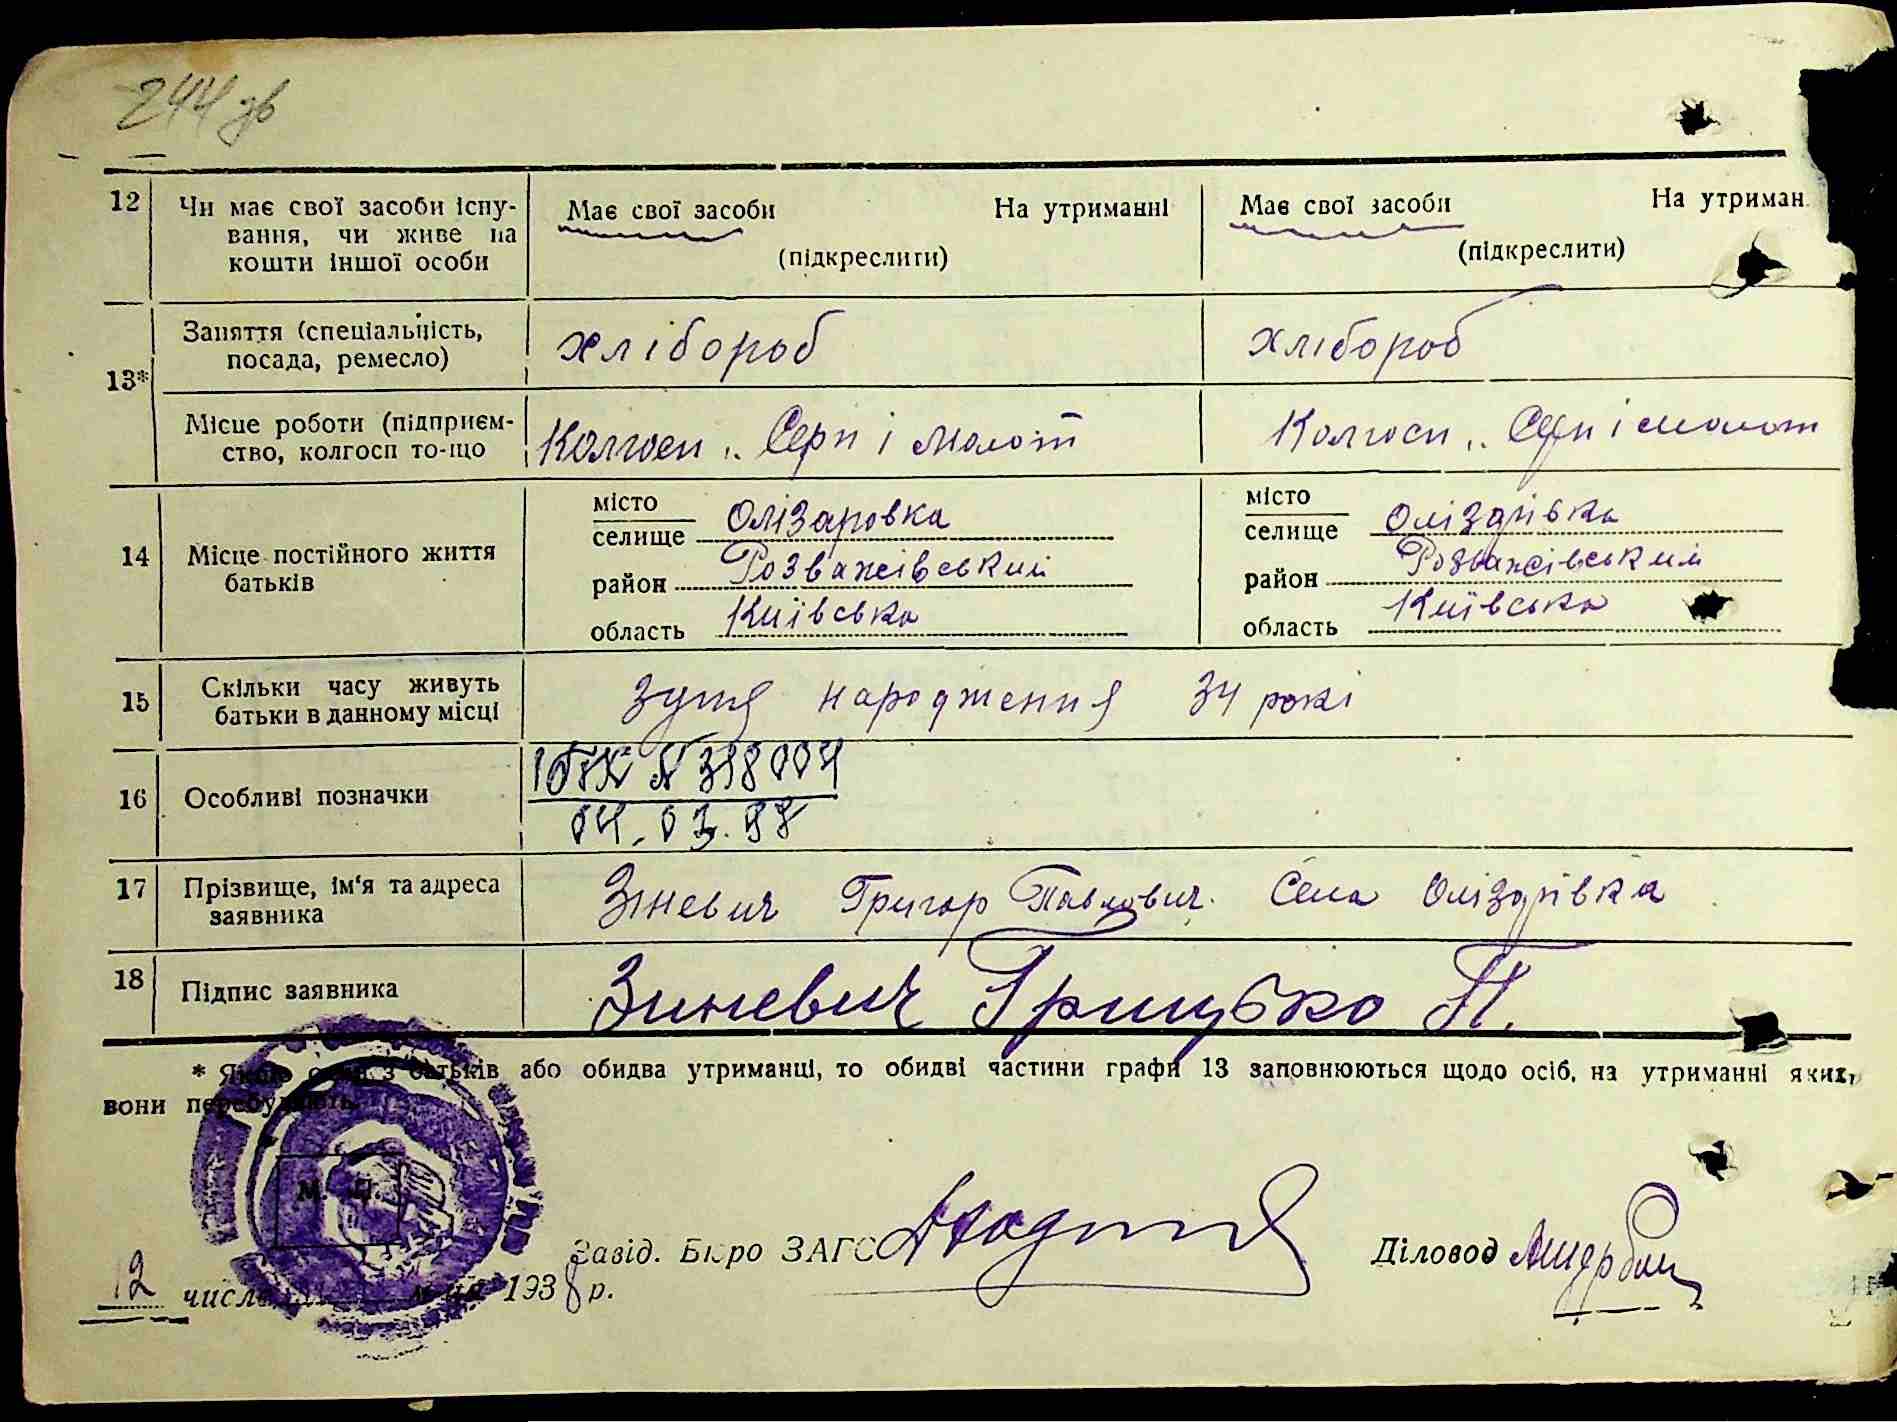 244 зв
12 Чи має свої засоби існу-
вання, чи живе на
кошти іншої особи
Має свої засоби На утриманні
(підкреслити)
Має свої засоби На утриман
(підкреслити)
13*
Заняття (спеціальність,
посада, ремесло)
хлібороб
хлібороб
Місце роботи (підприєм-
ство, колгосп то-що
Колгосп „ Серп і молот
Колгосп „ Серп і молот
14 Місце постійного життя
батьків
місто
селище Олізаровка
район Розважівський
область Київська
місто
селище Олізарівка
район Розважівський
область Київська
15 Скільки часу живуть
батьки в данному місці
народження 34 рокі
16 Особливі позначки
N 398004
17 Прізвище, ім'я та адреса
заявника
Зіневич Григор Павлович. Села Олізарівка
18 Підпис заявника
Зиневич Грицько П.
* Якщо один з батьків або обидва утриманці, то обидві частини графи 13 заповнюються щодо осіб, на утриманні яких,
вони перебувають.
М. П.
12 числа 1938 р.
Завід. Бюро ЗАГС
Діловод